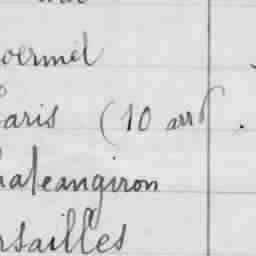 oermel
aris (10 arrt.
hateaugiron
rsailles